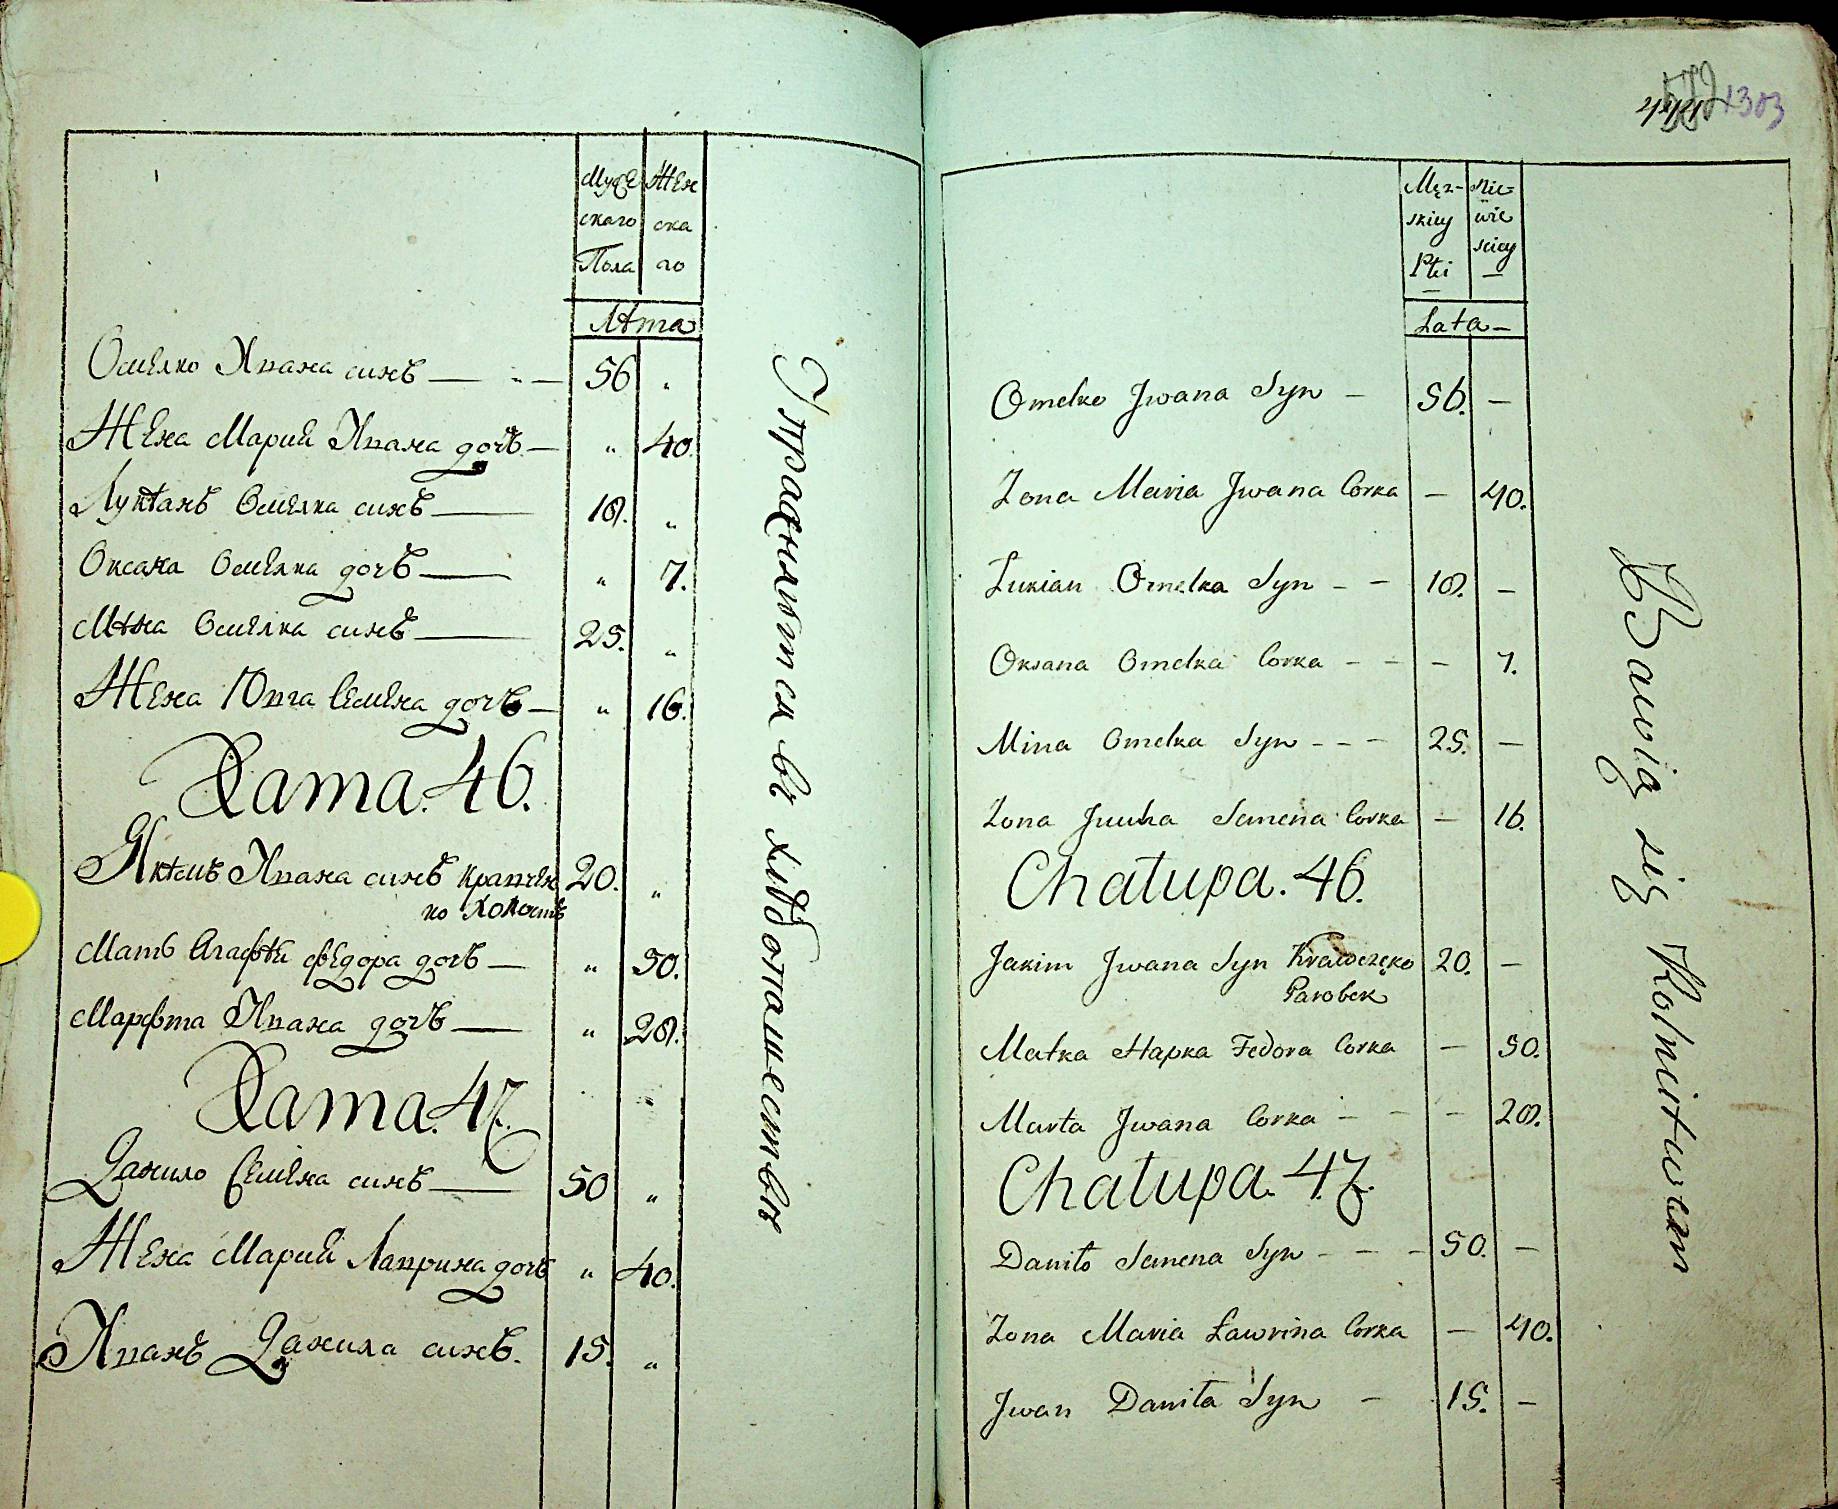 Муже Жен
скаго ска
Пола го
Лѣта
Омелко Ивана синъ — " — 56 "
Жена Марий Ивана дочъ — " 40.
Лукѣанъ Омелка синъ — 18. "
Оксана Омелка дочъ — " 7.
Мѣна Омелка синъ — 25. "
Жена Ювга Семена дочъ — " 16.
Хата. 46.
Якѣмъ Ивана синъ Кравчен 20. "
ко Холостъ
Мать Агафѣи Федора дочъ — " 50.
Марфта Ивана дочъ — " 28.
Хата. 47.
Данило Семена синъ — 50 "
Жена Марий Лаврина дочъ " 40.
Иванъ Данила синъ. 15. "
Упражнѣются въ хлѣбопашествѣ
1303
Męz- Nie=
skiey wie
Płci sciey
Lata —
Omelko Jwana Syn — 56. —
Zona Maria Jwana Corka — 40.
Lukian Omelka Syn - - 18. —
Oksana Omelka Corka - - - 7.
Mina Omelka Syn - - - 25. —
Zona Juwha Semena Corka — 16.
Chałupa. 46.
Jakim Jwana Syn Krawczęko 20. —
Parobek
Matka Hapka Fedora Corka — 50.
Marta Jwana Corka - - - 28.
Chałupa. 47.
Daniło Semena Syn - - - 50. —
Zona Maria Ławrina Corka — 40.
Jwan Daniła Syn — 15. —
Bawią się Rolnictwem